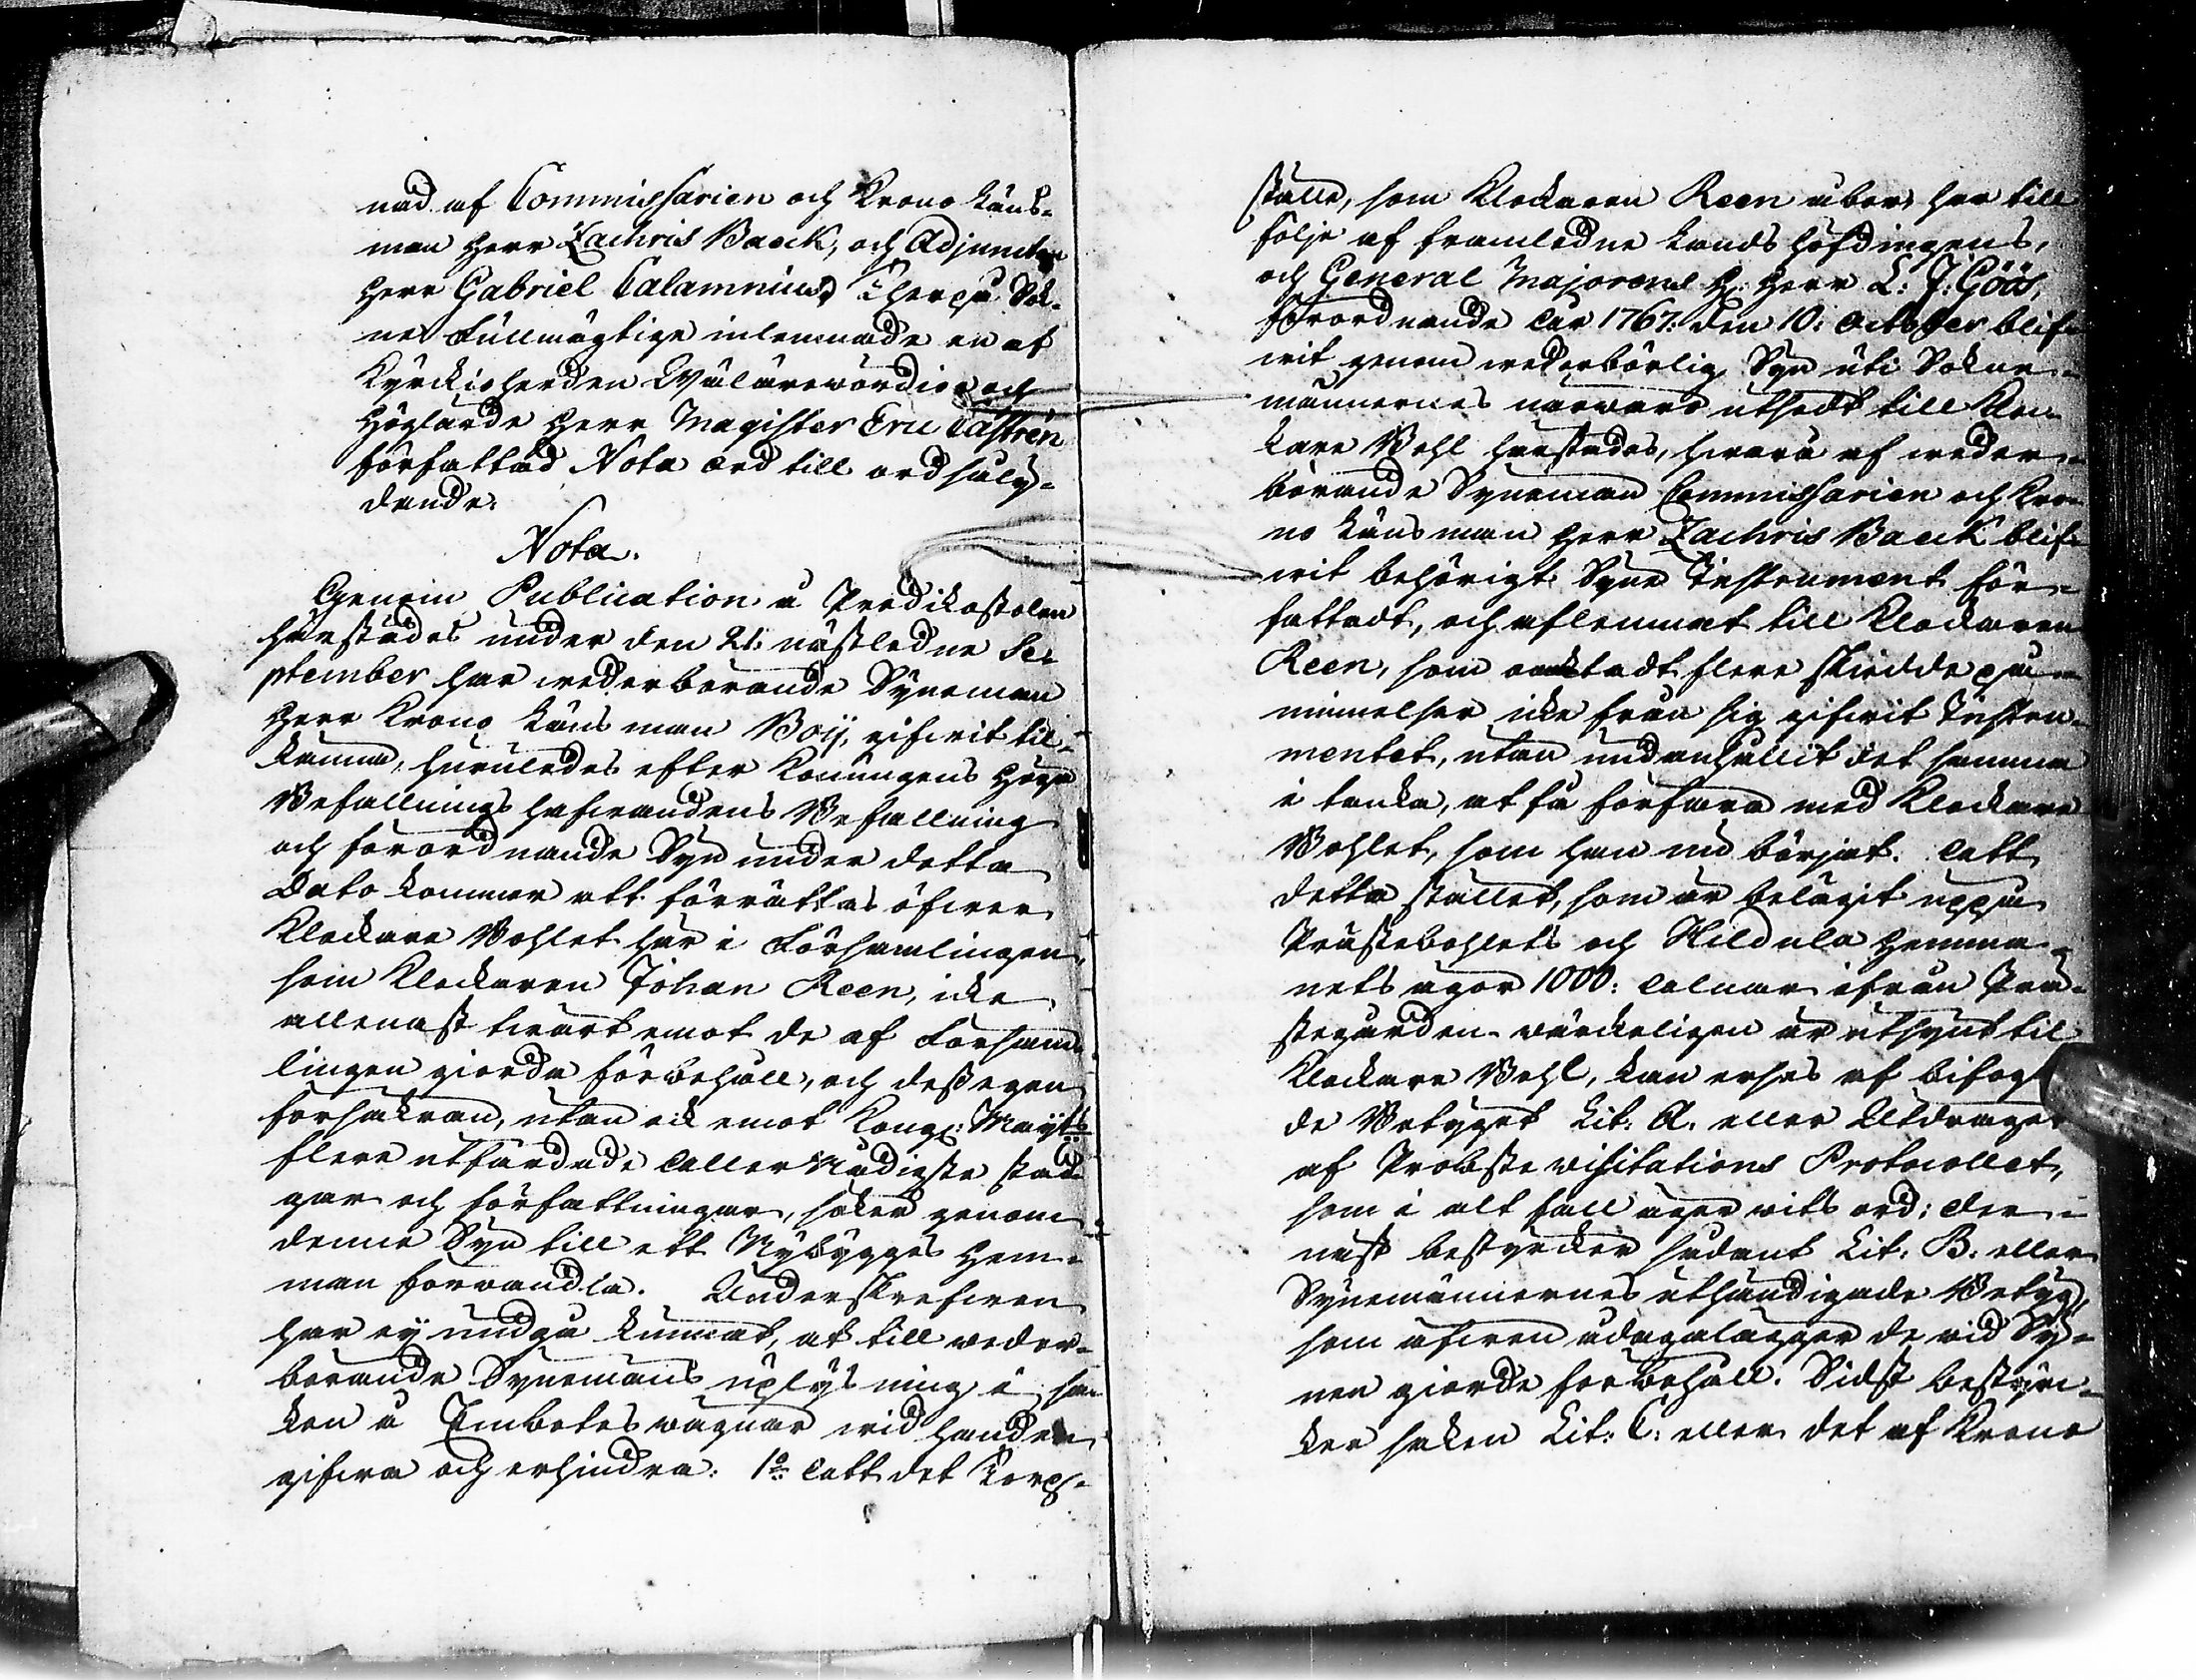 nad af Commissarien och Krono Läns-
man Herr Zachris Baeck, och Adjuncten
Herr Gabriel Calamnius, Therpå Sok-
nes Fullmägtige inlemnade en af
Kyrckioherden Wälärewördige och
Höglärde Herr Magister Eric Castrén
författad Nota ord till ord såly-
dande:
Nota.
Genom Publication å Predikostolen
härstädes under den 21: nästledne Se-
ptember har wederbörande Syneman
Herr Krono Läns man Boij, gifwit til-
känna, huruledes efter Konungens Höga
Befallnings hafwandens Befallning
och förordnande Syn under detta
Dato kommer att förrättas öfwer
Klockare Bohlet här i Församlingen,
som Klockaren Johan Reen, icke
allenast twärt emot de af Försam-
lingen giorda förbehåll, och dess egen
försäkran, utan ock emot Kongl: Mayts
flere utfärdade aller Nådigste stad-
gar och författningar, söker genom
denne Syn till ett Nybygges Hem-
man förwandla. Underskrefwen
har ej undgå kunnat, at till weder-
börande Synemans uplysning i sa-
ken å Embetes wägnar wid handen
gifwa och erhindra: 1o att det Torp-
ställe, som Klockaren Reen åbor, har till
följe af framledne Lands Höfdingens,
och General Majorens H: Herr C: J: Göös,
förordnande av 1767: den 10: October blif-
wit genom wederbörlig Syn uti Sokne-
männernes närwaro utsedt till Kloc-
kare Bohl härstädes, hwarå af weder-
börande Syneman Commissarien och Kro-
no Länsman Herr Zachris Baeck blif-
wit behörigt Syne Instrument för-
fattadt, och aflemnat till Klockaren
Reen, som oacktadt flere skedde på-
minnelser icke från sig gifwit Instru-
mentet, utan undanhållit det samma
i tanka, at få förfara med Klockare
Bohlet, som han nu börjat. att
detta stället, som är belägit uppå
Prästebohlets och Hildula Hemma-
nets ägor 1000: alnar ifrån Prä-
stegården wärckeligen är utsynt til
Klockare Bohl, kan erses af bifog-
de Betyget Lit: A. eller Utdraget
af Probste visitations Protocollet,
som i alt fall äger wits ord: der-
näst bestyrcker sådant Lit: B: eller
Synemännernes uthändigade Betyg,
som äfwen ådagalägger de wid Sy-
nen giorde förbehåll. Sidst bestyrc-
ker saken Lit: C: eller det af Krono